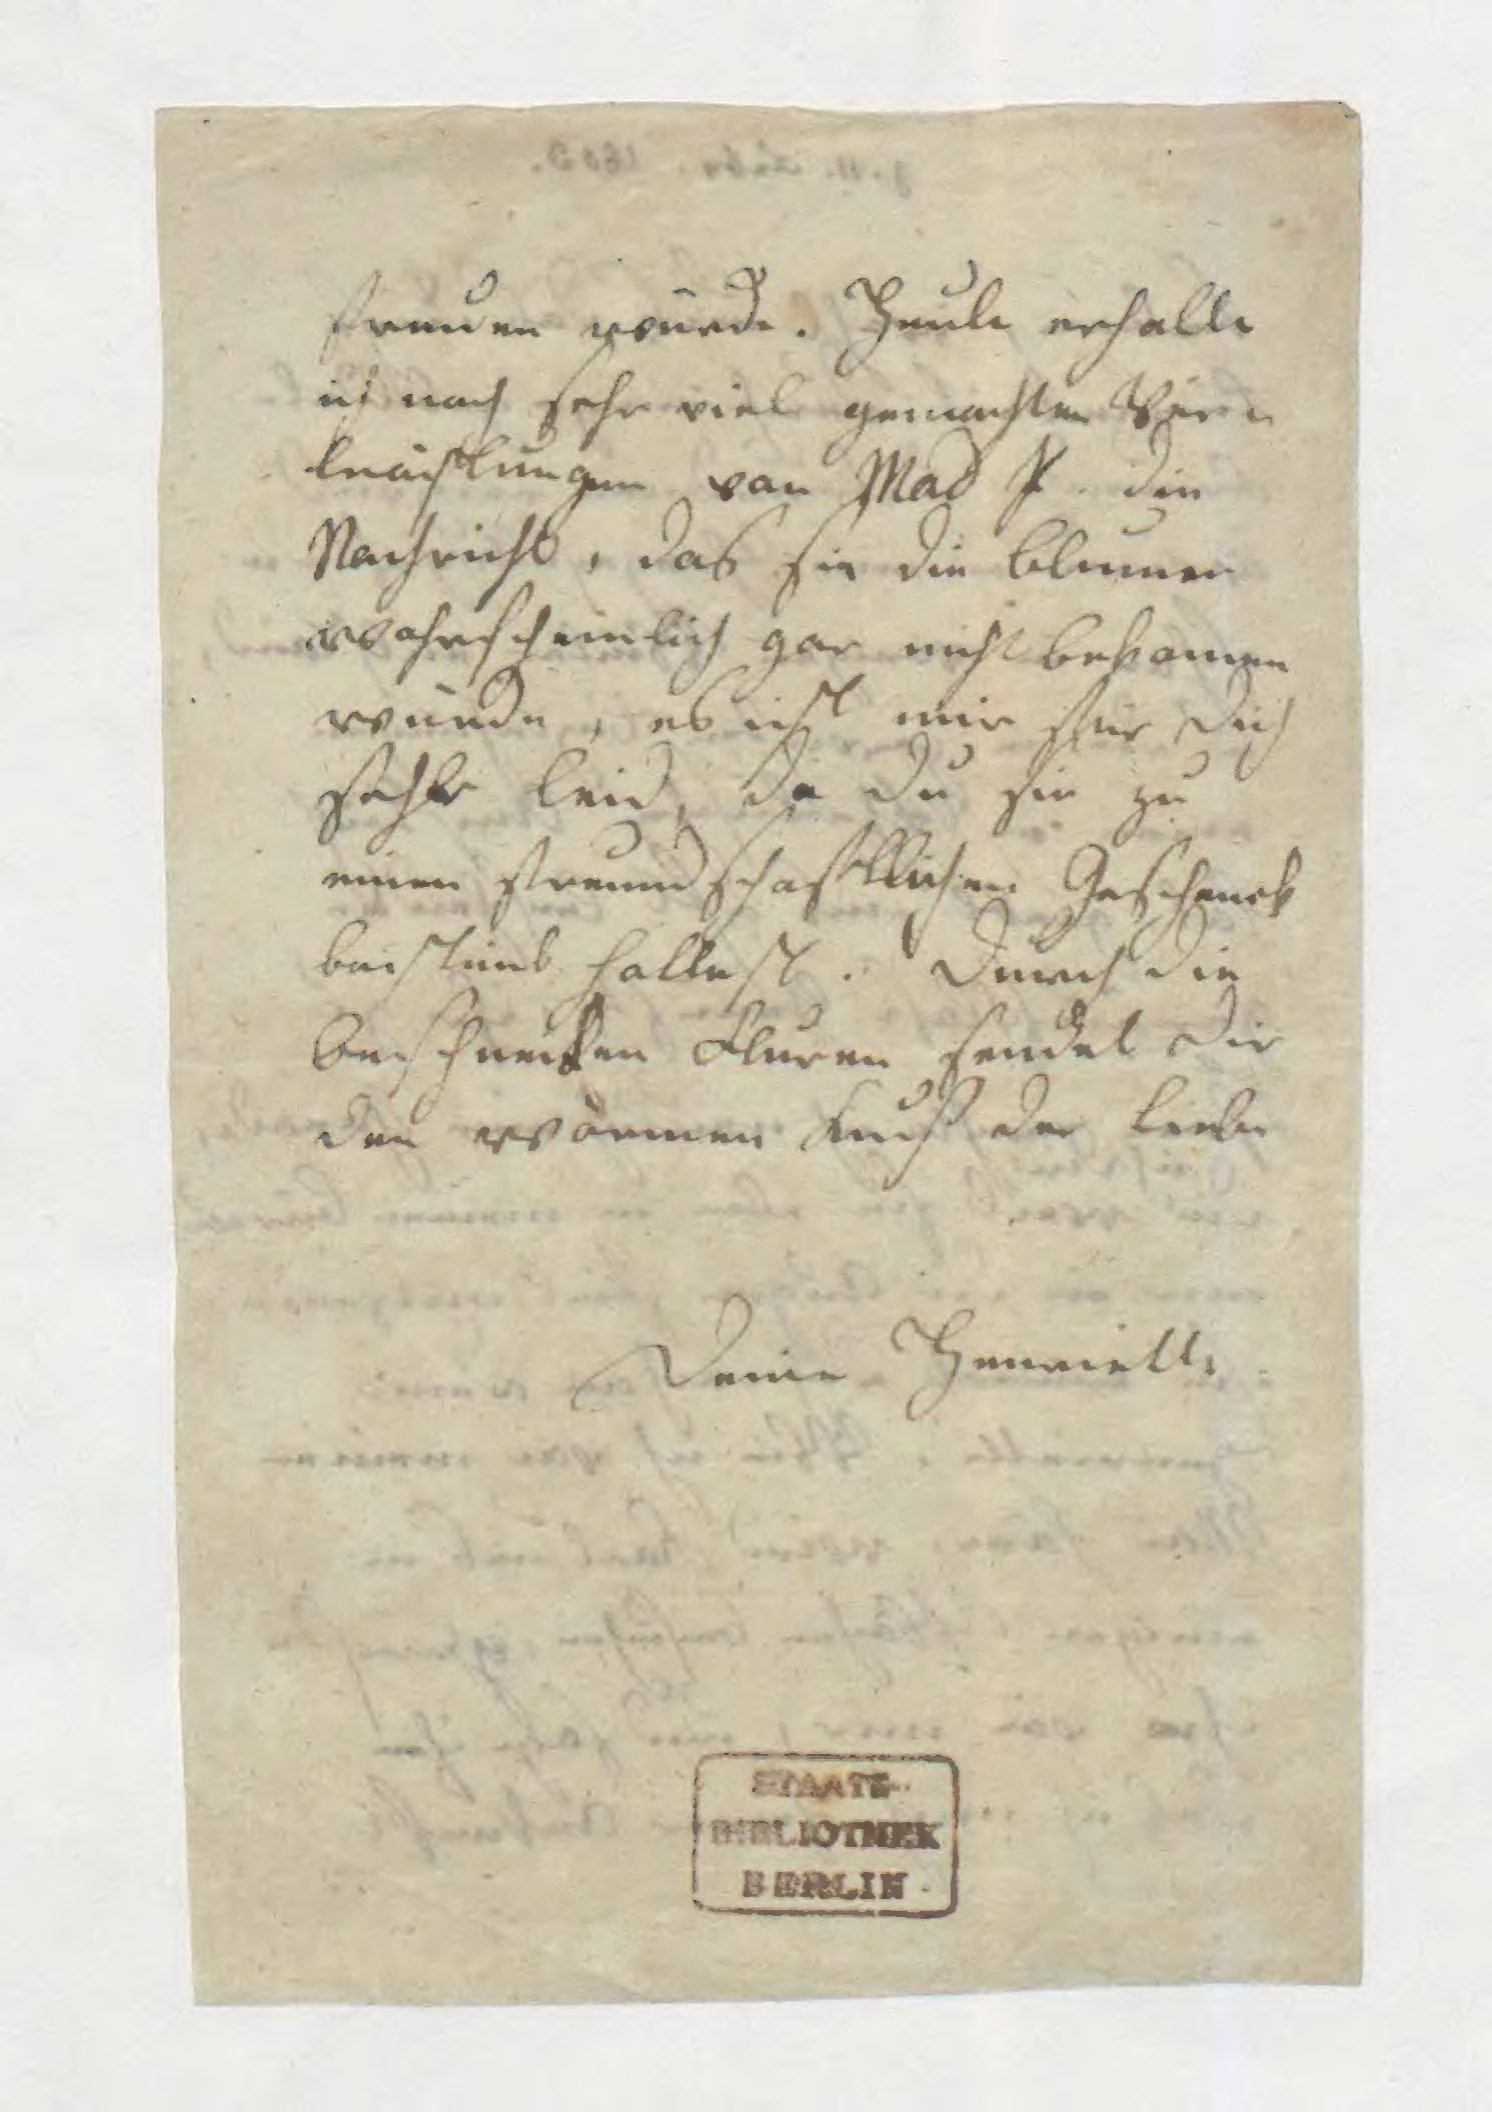 freuen würde. Heute erhalte
ich nach sehr viel gemachten
von Mad P. die
Nachricht, das sie die Blumen
wahrscheinlich gar nicht bekomen
würde, es ist mir für dich
sehr leid, da du sie zu
einen freundschaftlichen Geschenck
bestimt hattest. Durch die
beschneiten Fluren sendet dir
den wärmen Kuß der Liebe
Deine Henriette
STAATS-
BIBLIOTHEK
BERLIN